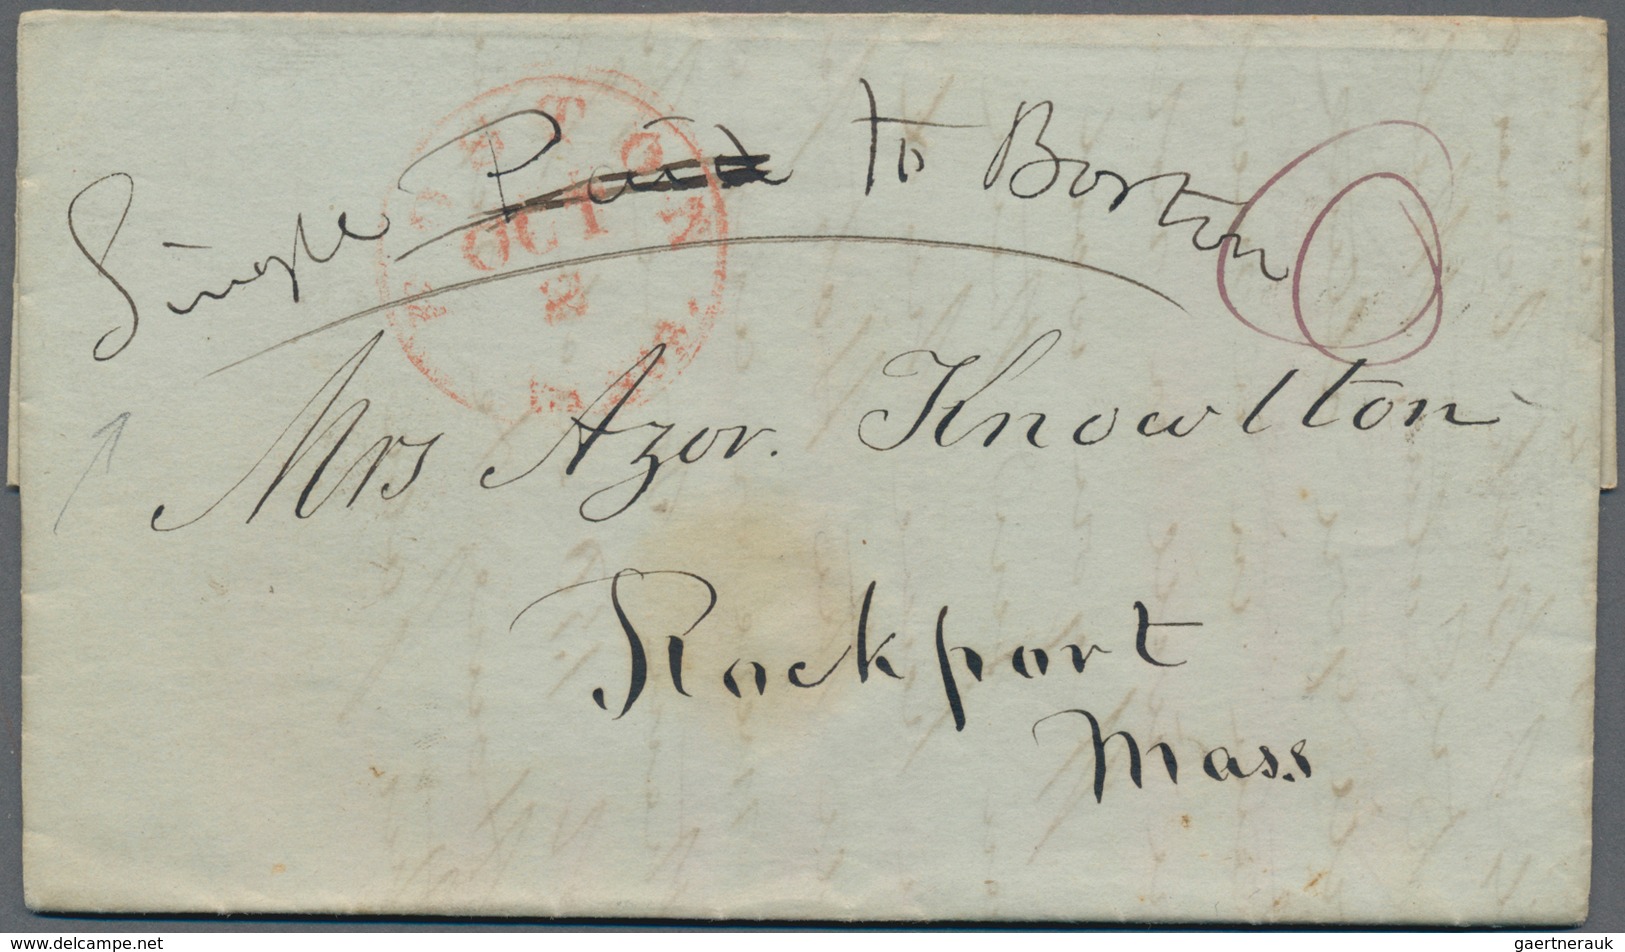 Single Paid to Boston
BOSTON
OCT
2
Mrs Azor. Knowlton
Rockport
Mass
delcampe.net
gaertnerauk